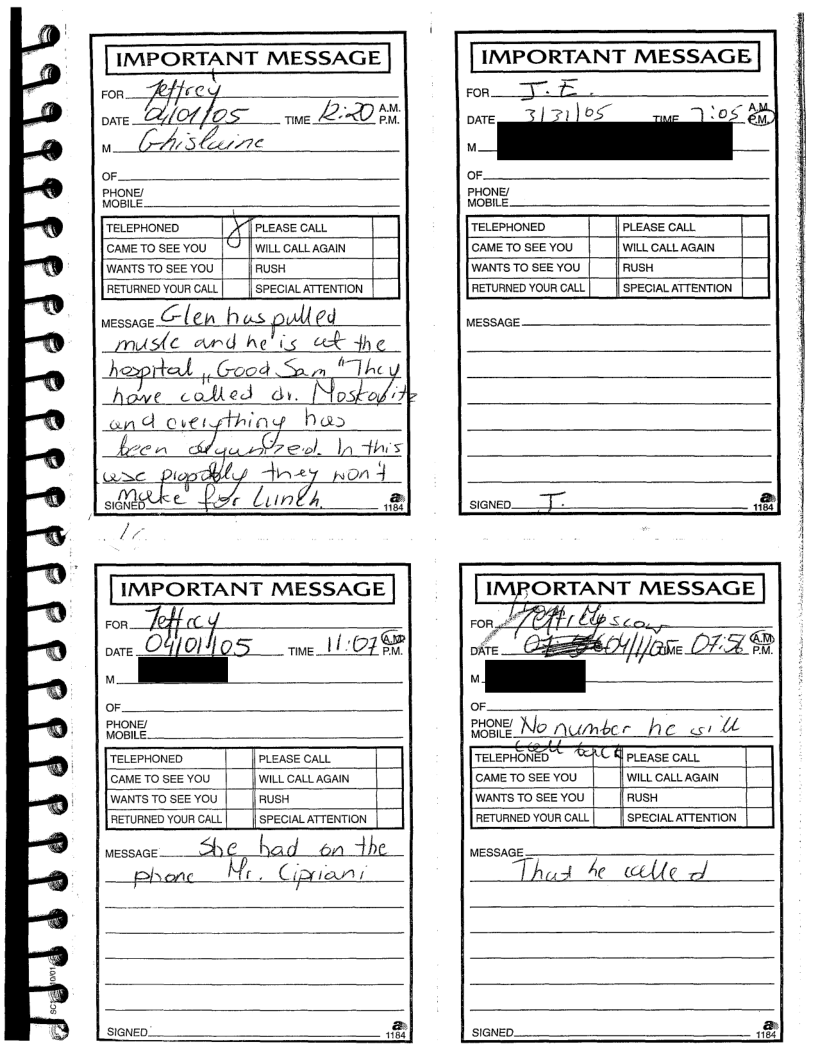 IMPORTANT MESSAGE
FOR Jeffrey
DATE 04/01/05 TIME 12:20 A.M. P.M.
M Ghislaine
OF
PHONE/
MOBILE
TELEPHONED PLEASE CALL
CAME TO SEE YOU WILL CALL AGAIN
WANTS TO SEE YOU RUSH
RETURNED YOUR CALL SPECIAL ATTENTION
MESSAGE Glen has pulled
musle and he is at the
hospital „Good Sam" They
have called dr. Moskovitz
and everything has
been organized. In this
case propobly they won't
make for lunch.
SIGNED
1184
IMPORTANT MESSAGE
FOR J.E.
DATE 3/31/05 TIME 7:05 A.M. P.M.
M
OF
PHONE/
MOBILE
TELEPHONED PLEASE CALL
CAME TO SEE YOU WILL CALL AGAIN
WANTS TO SEE YOU RUSH
RETURNED YOUR CALL SPECIAL ATTENTION
MESSAGE
SIGNED J.
1184
IMPORTANT MESSAGE
FOR Jeffrey
DATE 04/01/05 TIME 11:07 A.M. P.M.
M
OF
PHONE/
MOBILE
TELEPHONED PLEASE CALL
CAME TO SEE YOU WILL CALL AGAIN
WANTS TO SEE YOU RUSH
RETURNED YOUR CALL SPECIAL ATTENTION
MESSAGE She had on the
phone Mr. Cipriani
SIGNED
1184
IMPORTANT MESSAGE
FOR
DATE 04/1/05 TIME 07:56 A.M. P.M.
M
OF
PHONE/
MOBILE No number he will
call back
TELEPHONED PLEASE CALL
CAME TO SEE YOU WILL CALL AGAIN
WANTS TO SEE YOU RUSH
RETURNED YOUR CALL SPECIAL ATTENTION
MESSAGE
That he called
SIGNED
1184